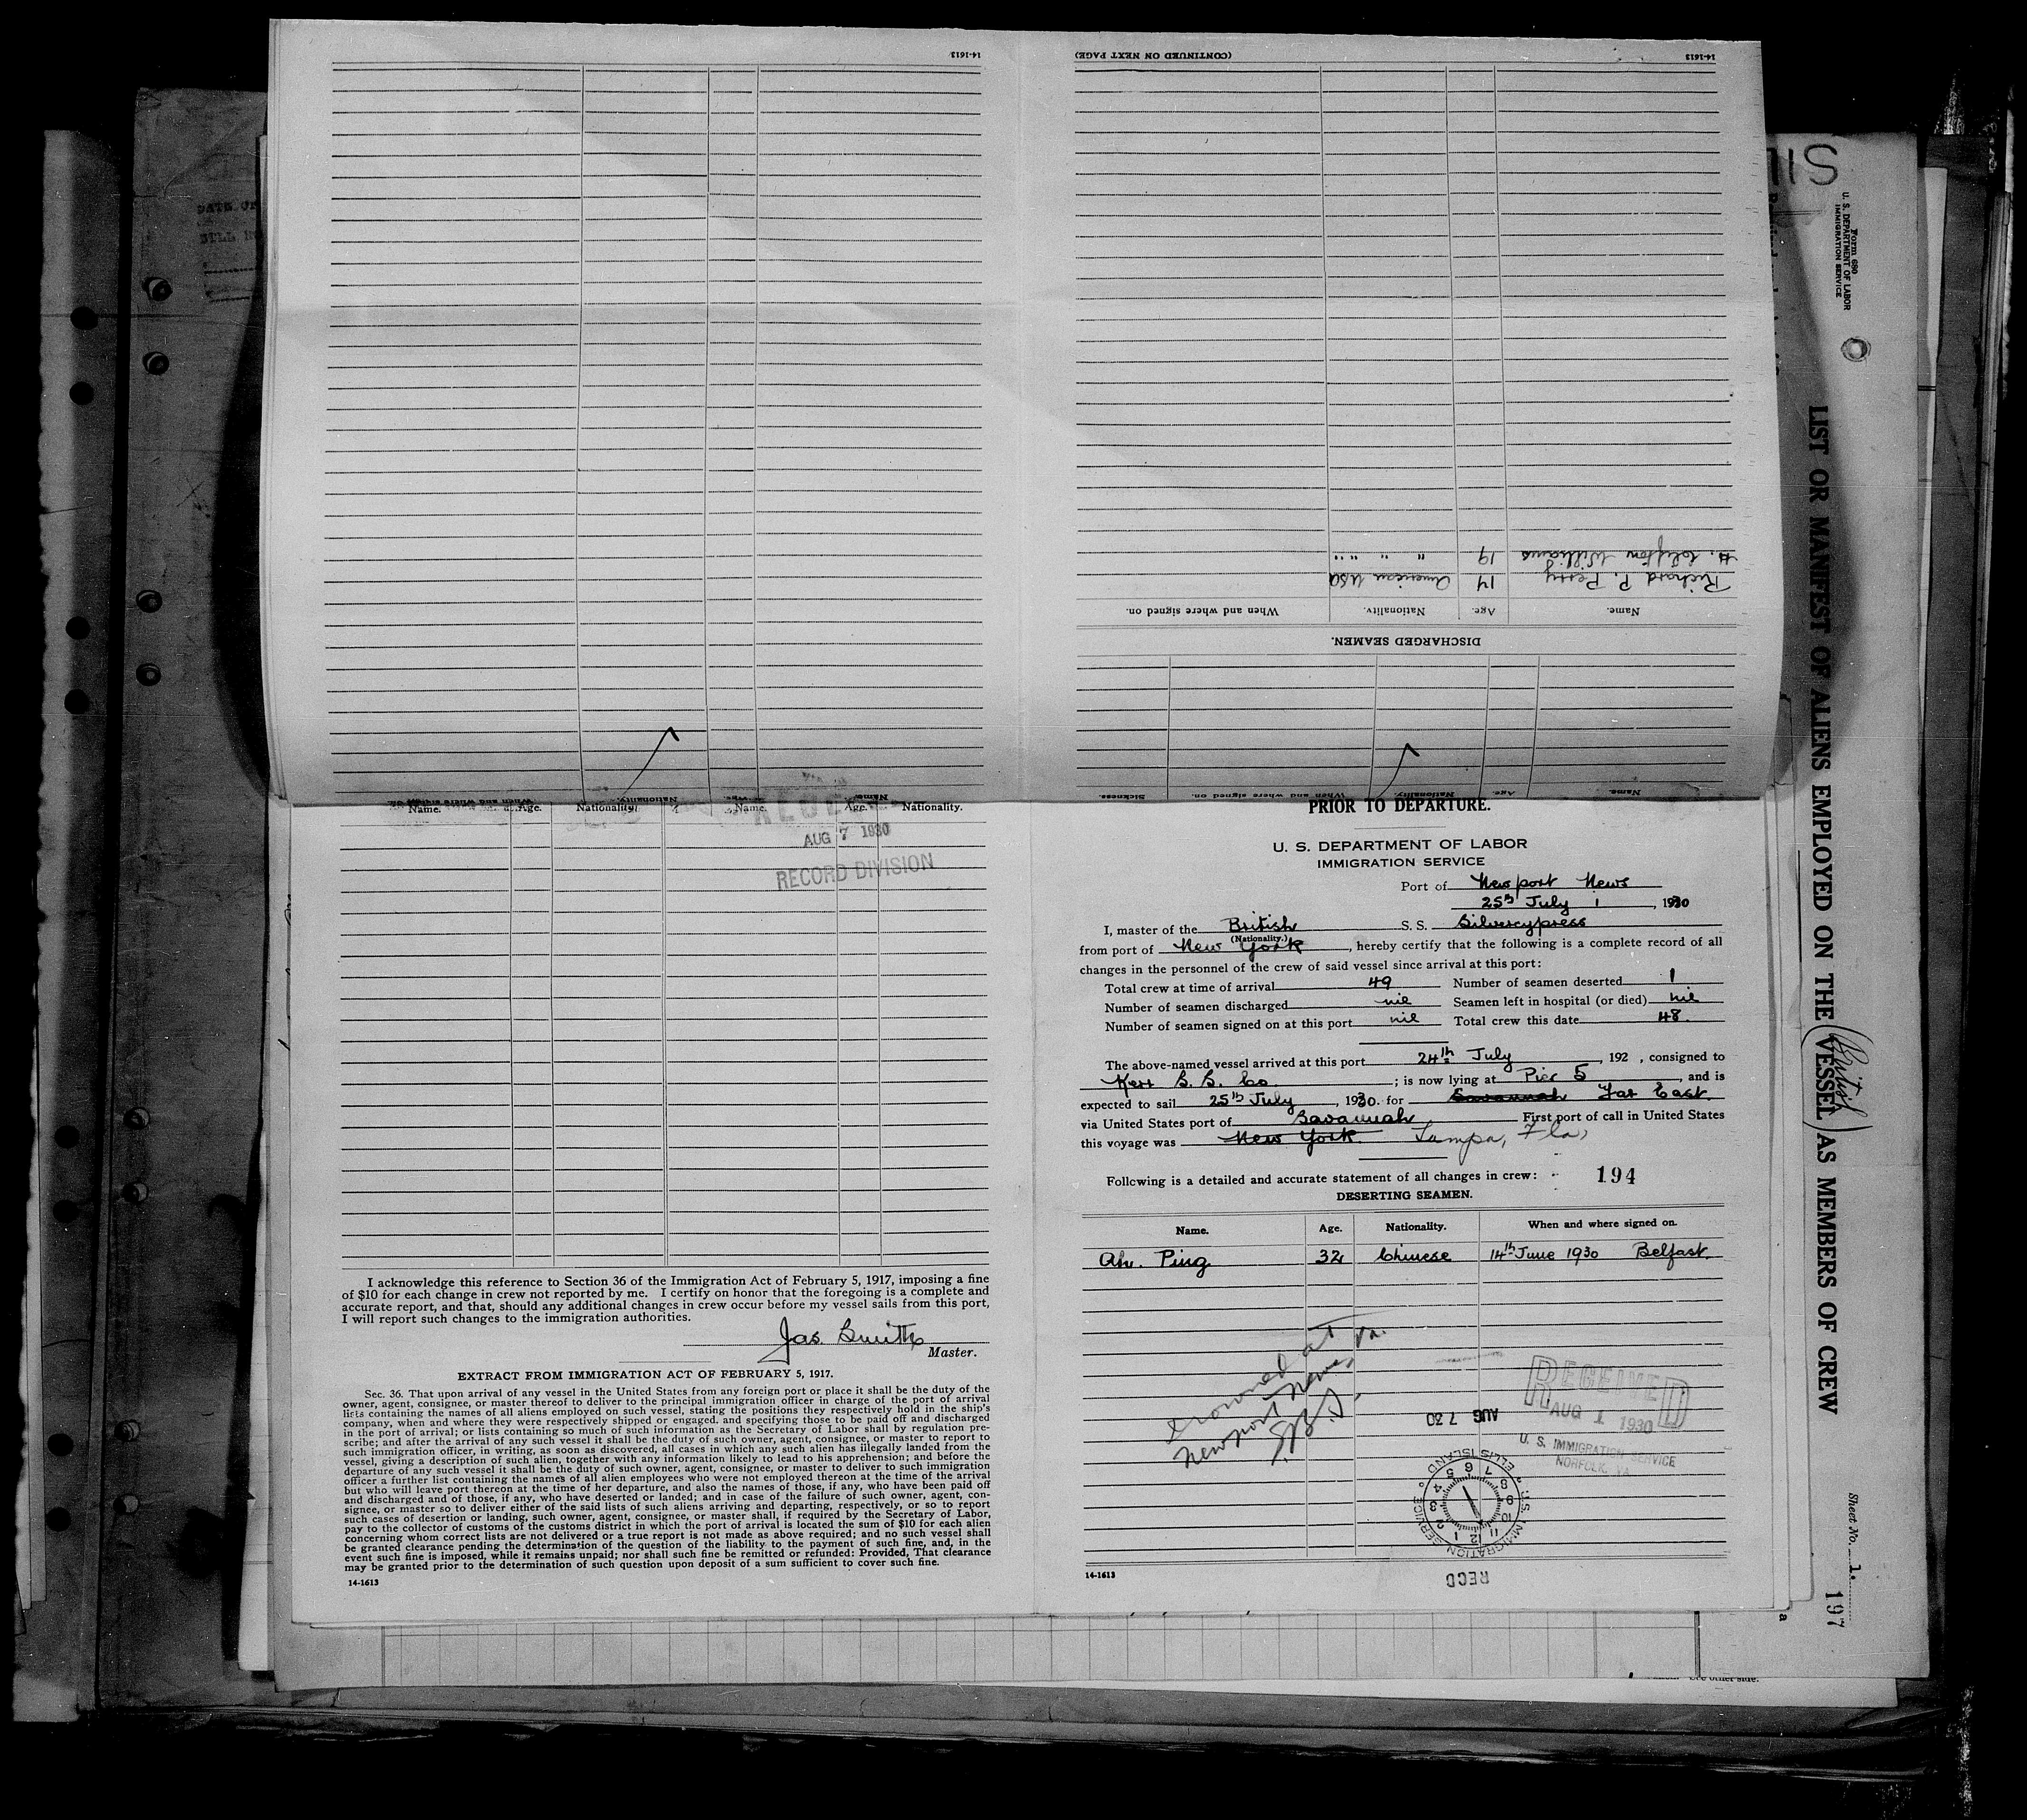 14-1613
(CONTINUED ON NEXT PAGE)
14-1613
H. Clifton Williams 19 " " " "
Richard P. Perry 14 American USA
Name. Age. Nationality. When and where signed on.
DISCHARGED SEAMEN.
Name. Age. Nationality. When and where signed on. Sickness.
Name. Age. Nationality. When and where signed on.
Name. Age. Nationality. Name. Age. Nationality.
AUG 7 1930
RECORD DIVISION
I acknowledge this reference to Section 36 of the Immigration Act of February 5, 1917, imposing a fine
of $10 for each change in crew not reported by me. I certify on honor that the foregoing is a complete and
accurate report, and that, should any additional changes in crew occur before my vessel sails from this port,
I will report such changes to the immigration authorities.
Jas. Smith
Master.
EXTRACT FROM IMMIGRATION ACT OF FEBRUARY 5, 1917.
Sec. 36. That upon arrival of any vessel in the United States from any foreign port or place it shall be the duty of the
owner, agent, consignee, or master thereof to deliver to the principal immigration officer in charge of the port of arrival
lists containing the names of all aliens employed on such vessel, stating the positions they respectively hold in the ship's
company, when and where they were respectively shipped or engaged, and specifying those to be paid off and discharged
in the port of arrival; or lists containing so much of such information as the Secretary of Labor shall by regulation pre-
scribe; and after the arrival of any such vessel it shall be the duty of such owner, agent, consignee, or master to report to
such immigration officer, in writing, as soon as discovered, all cases in which any such alien has illegally landed from the
vessel, giving a description of such alien, together with any information likely to lead to his apprehension; and before the
departure of any such vessel it shall be the duty of such owner, agent, consignee, or master to deliver to such immigration
officer a further list containing the names of all alien employees who were not employed thereon at the time of the arrival
but who will leave port thereon at the time of her departure, and also the names of those, if any, who have been paid off
and discharged and of those, if any, who have deserted or landed; and in case of the failure of such owner, agent, con-
signee, or master so to deliver either of the said lists of such aliens arriving and departing, respectively, or so to report
such cases of desertion or landing, such owner, agent, consignee, or master shall, if required by the Secretary of Labor,
pay to the collector of customs of the customs district in which the port of arrival is located the sum of $10 for each alien
concerning whom correct lists are not delivered or a true report is not made as above required; and no such vessel shall
be granted clearance pending the determination of the question of the liability to the payment of such fine, and, in the
event such fine is imposed, while it remains unpaid; nor shall such fine be remitted or refunded: Provided, That clearance
may be granted prior to the determination of such question upon deposit of a sum sufficient to cover such fine.
14-1613
PRIOR TO DEPARTURE.
U. S. DEPARTMENT OF LABOR
IMMIGRATION SERVICE
Port of Newport News
25th July 1, 1930
I, master of the British S. S. Silvercypress
(Nationality.)
from port of New York, hereby certify that the following is a complete record of all
changes in the personnel of the crew of said vessel since arrival at this port:
Total crew at time of arrival 49 Number of seamen deserted 1
Number of seamen discharged nil Seamen left in hospital (or died) nil
Number of seamen signed on at this port nil Total crew this date 48.
The above-named vessel arrived at this port 24th July, 192 , consigned to
Kerr S. S. Co. ; is now lying at Pier 5, and is
expected to sail 25th July, 1930. for Savannah Far East.
via United States port of Savannah First port of call in United States
this voyage was New York. Tampa, Fla,
Following is a detailed and accurate statement of all changes in crew: 194
DESERTING SEAMEN.
Name. Age. Nationality. When and where signed on.
Ah. Ping 32 Chinese 14th June 1930 Belfast.
drowned at
Newport News, Va.
RECEIVED
AUG 1 1930
U. S. IMMIGRATION SERVICE
NORFOLK, VA.
AUG 7 30
U. S. IMMIGRATION SERVICE ELLIS ISLAND
1 2 3 4 5 6 7 8 9 10 11 12
RECD
14-1613
Form 680
U. S. DEPARTMENT OF LABOR
IMMIGRATION SERVICE
LIST OR MANIFEST OF ALIENS EMPLOYED ON THE (British) VESSEL AS MEMBERS OF CREW
Sheet No. 1.
197
DATE OF